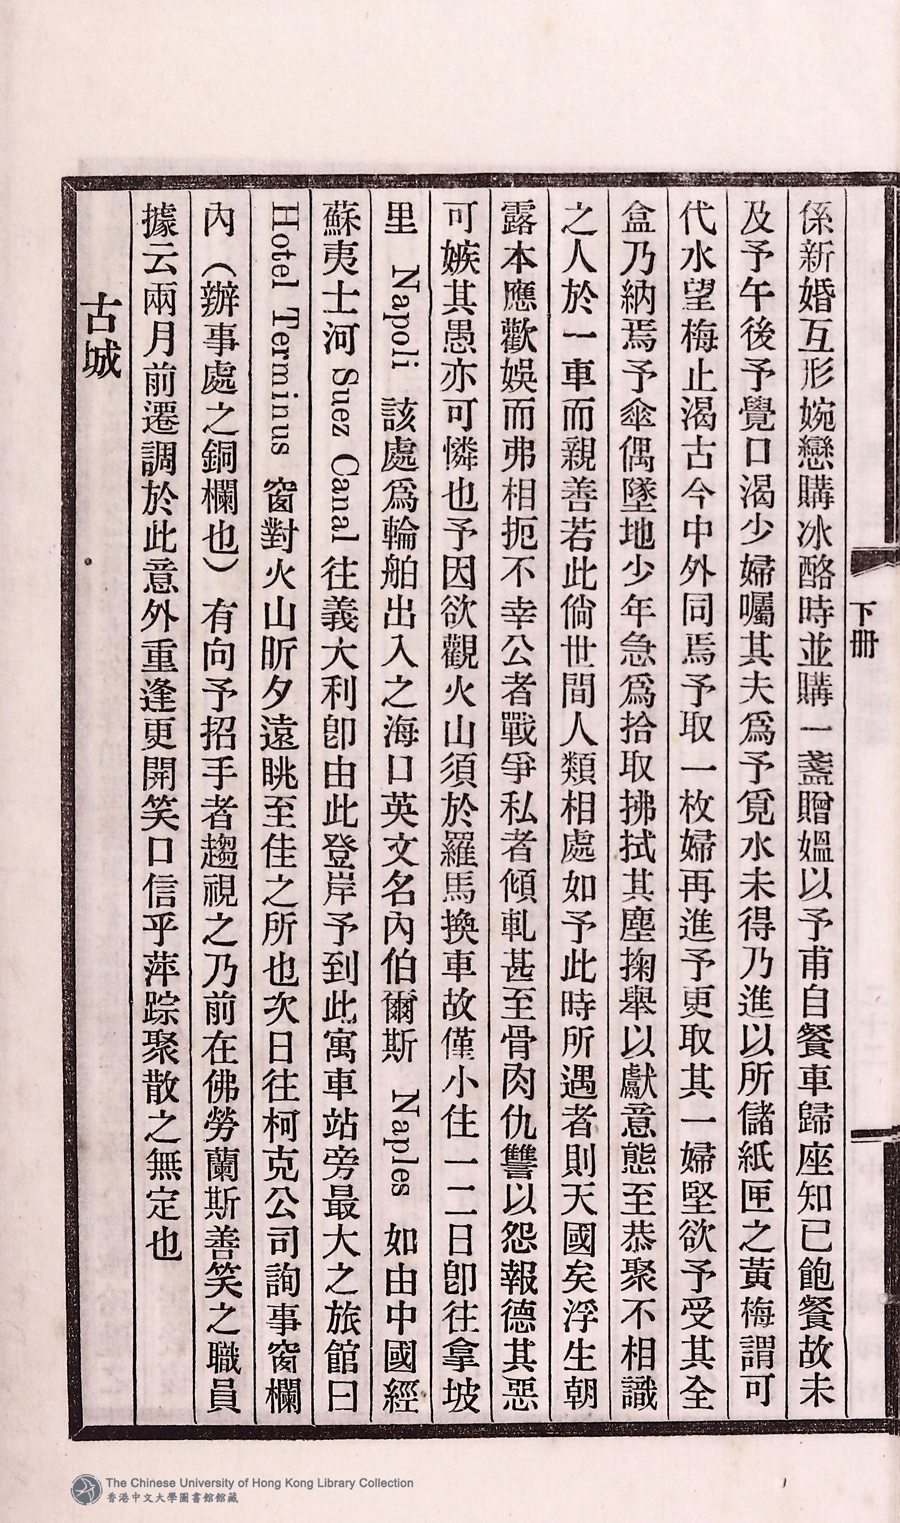 下冊
係新婚互形婉戀購冰酪時並購一盞贈媼以予甫自餐車歸座知已飽餐故未
及予午後予覺口渴少婦囑其夫爲予覓水未得乃進以所儲紙匣之黃梅謂可
代水望梅止渴古今中外同焉予取一枚婦再進予更取其一婦堅欲予受其全
盒乃納焉予傘偶墜地少年急爲拾取拂拭其塵掬舉以獻意態至恭聚不相識
之人於一車而親善若此倘世間人類相處如予此時所遇者則天國矣浮生朝
露本應歡娛而弗相扼不幸公者戰爭私者傾軋甚至骨肉仇讐以怨報德其惡
可嫉其愚亦可憐也予因欲觀火山須於羅馬換車故僅小住一二日卽往拿坡
里 Napoli 該處爲輪舶出入之海口英文名內伯爾斯 Naples 如由中國經
蘇夷士河 Suez Canal 往義大利卽由此登岸予到此寓車站旁最大之旅館曰
Hotel Terminus 窗對火山昕夕遠眺至佳之所也次日往柯克公司詢事窗欄
內（辦事處之銅欄也）有向予招手者趨視之乃前在佛勞蘭斯善笑之職員
據云兩月前遷調於此意外重逢更開笑口信乎萍踪聚散之無定也
古城
The Chinese University of Hong Kong Library Collection
香港中文大學圖書館館藏